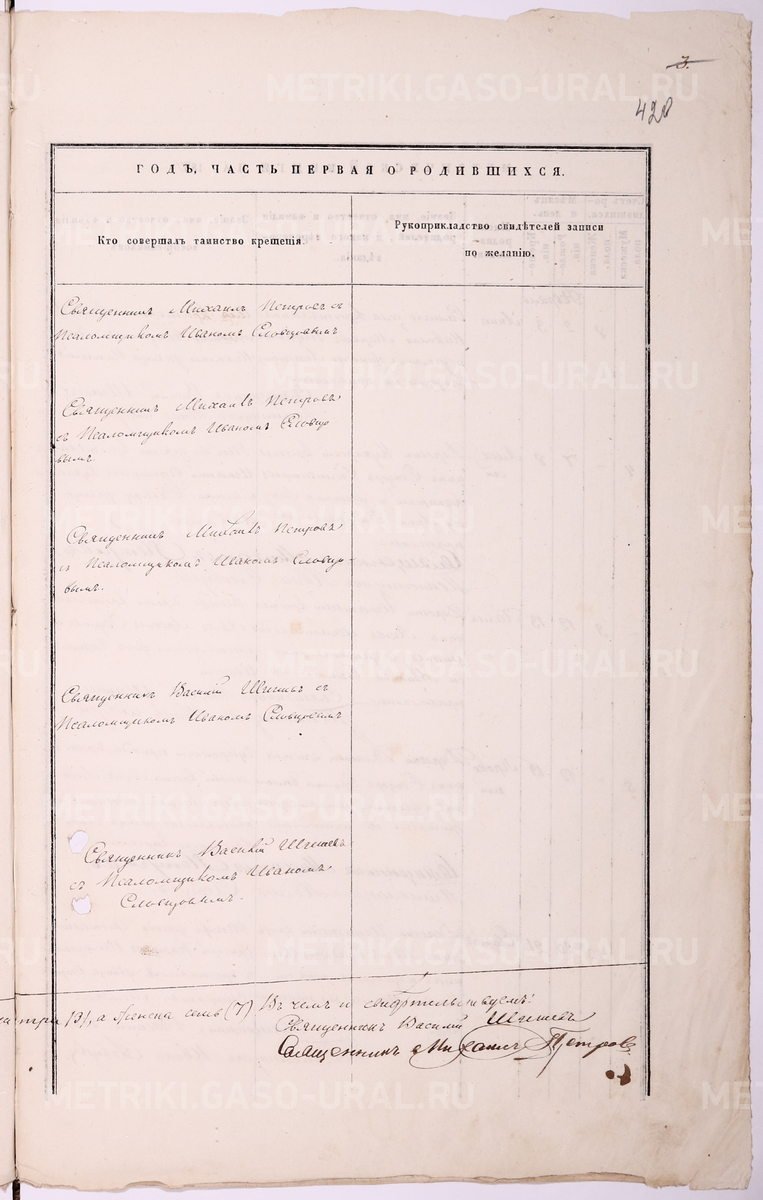 3.
420
ГОДЪ, ЧАСТЬ ПЕРВАЯ О РОДИВШИХСЯ.
Кто совершалъ таинство крещенія.
Рукоприкладство свидѣтелей записи
по желанію.
Священникъ Михаилъ Петровъ съ
Псаломщикомъ Иваномъ Словцовымъ
Священникъ Михаилъ Петровъ
съ Псаломщикомъ Иваномъ Словцо
вымъ
Священникъ Михаилъ Петровъ
съ Псаломщикомъ Иваномъ Словцо-
вымъ.
Священникъ Василій Шишевъ съ
Псаломщикомъ Иваномъ Словцовымъ
Священникъ Василій Шишевъ
съ Псаломщикомъ Иваномъ
Словцовымъ.
три (3), а женска семь (7) Въ чемъ и свидѣтельствуемъ:
Священникъ Василій Шишевъ
Священникъ Михаилъ Петровъ
METRIKI.GASO-URAL.RU